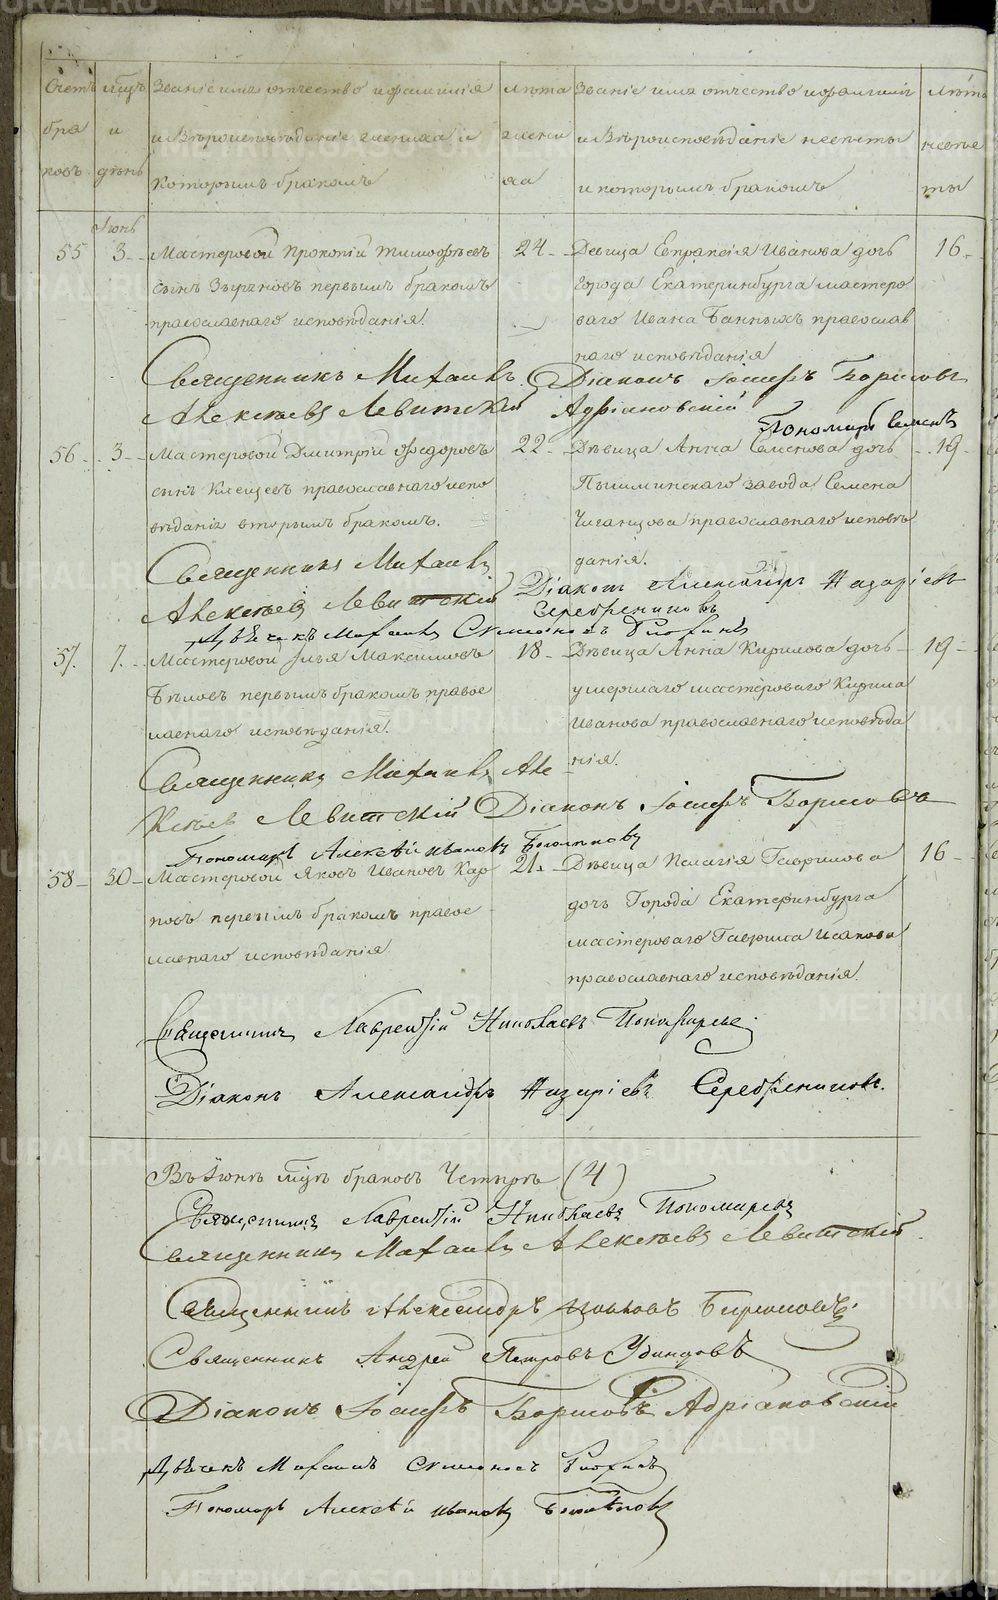 Счетъ браковъ
мѣсяцъ и день
Званіе имя отчество и фамилія
и вѣроисповѣданіе жениха и
которымъ бракомъ
Лѣта жениха
Званіе имя отчество и фамилія
и вѣроисповѣданіе невѣсты
и которымъ бракомъ
Лѣта невѣсты
Іюнь
55 3. Мастеровой Прокопій Тимофѣевъ 24
сынъ Зыряновъ первымъ бракомъ
православнаго исповѣданія.
Девица Евпраксія Иванова дочь 16
города Екатеринбурга мастеро
ваго Ивана Банныхъ православ
наго исповѣданія
Священникъ Михаилъ
Алексѣевъ Левитскій
Діаконъ Іосифъ Борисовъ
Адріановскій
Пономарь Семенъ
56 3 Мастеровой Дмитрій Ѳедоровъ 22
сынъ Клещевъ православнаго испо
вѣданія вторымъ бракомъ.
Дѣвица Анна Семенова дочь 19
Пышминскаго завода Семена
православнаго исповѣ
данія.
Священникъ Михаилъ
Алексѣевъ Левитскій
Діаконъ Александръ Назаріевъ
Серебрениковъ
Дьячекъ Михаилъ Симоновъ
57. 7. Мастеровой Илья Максимовъ 18
Бѣловъ первымъ бракомъ правос
лавнаго исповѣданія.
Дѣвица Анна Кирилова дочь 19
умершаго мастероваго Кирила
Иванова православнаго исповѣда
нія.
Священникъ Михаилъ Але
ксѣевъ Левитскій Діаконъ Іосифъ Борисовъ
Пономарь Алексѣй Ивановъ
58 30 Мастеровой Яковъ Ивановъ Кар 21
повъ первымъ бракомъ правос
лавнаго исповѣданія
Дѣвица Пелагія Гаврилова 16
дочь Города Екатеринбурга
мастероваго Гаврила Исакова
православнаго исповѣданія.
Священникъ Лаврентій Николаевъ Пономаревъ
Діаконъ Александръ Назаріевъ Серебрениковъ.
Въ Іюнѣ мцѣ браковъ Четыре (4)
Священникъ Лаврентій Николаевъ Пономаревъ
Священникъ Михаилъ Алексѣевъ Левитскій
Священникъ Александръ
Священникъ Андрей Петровъ Удинцовъ
Діаконъ Іосифъ Борисовъ Адріановскій
Дьячекъ Михаилъ Симоновъ
Пономарь Алексѣй Ивановъ
METRIKI.GASO-URAL.RU